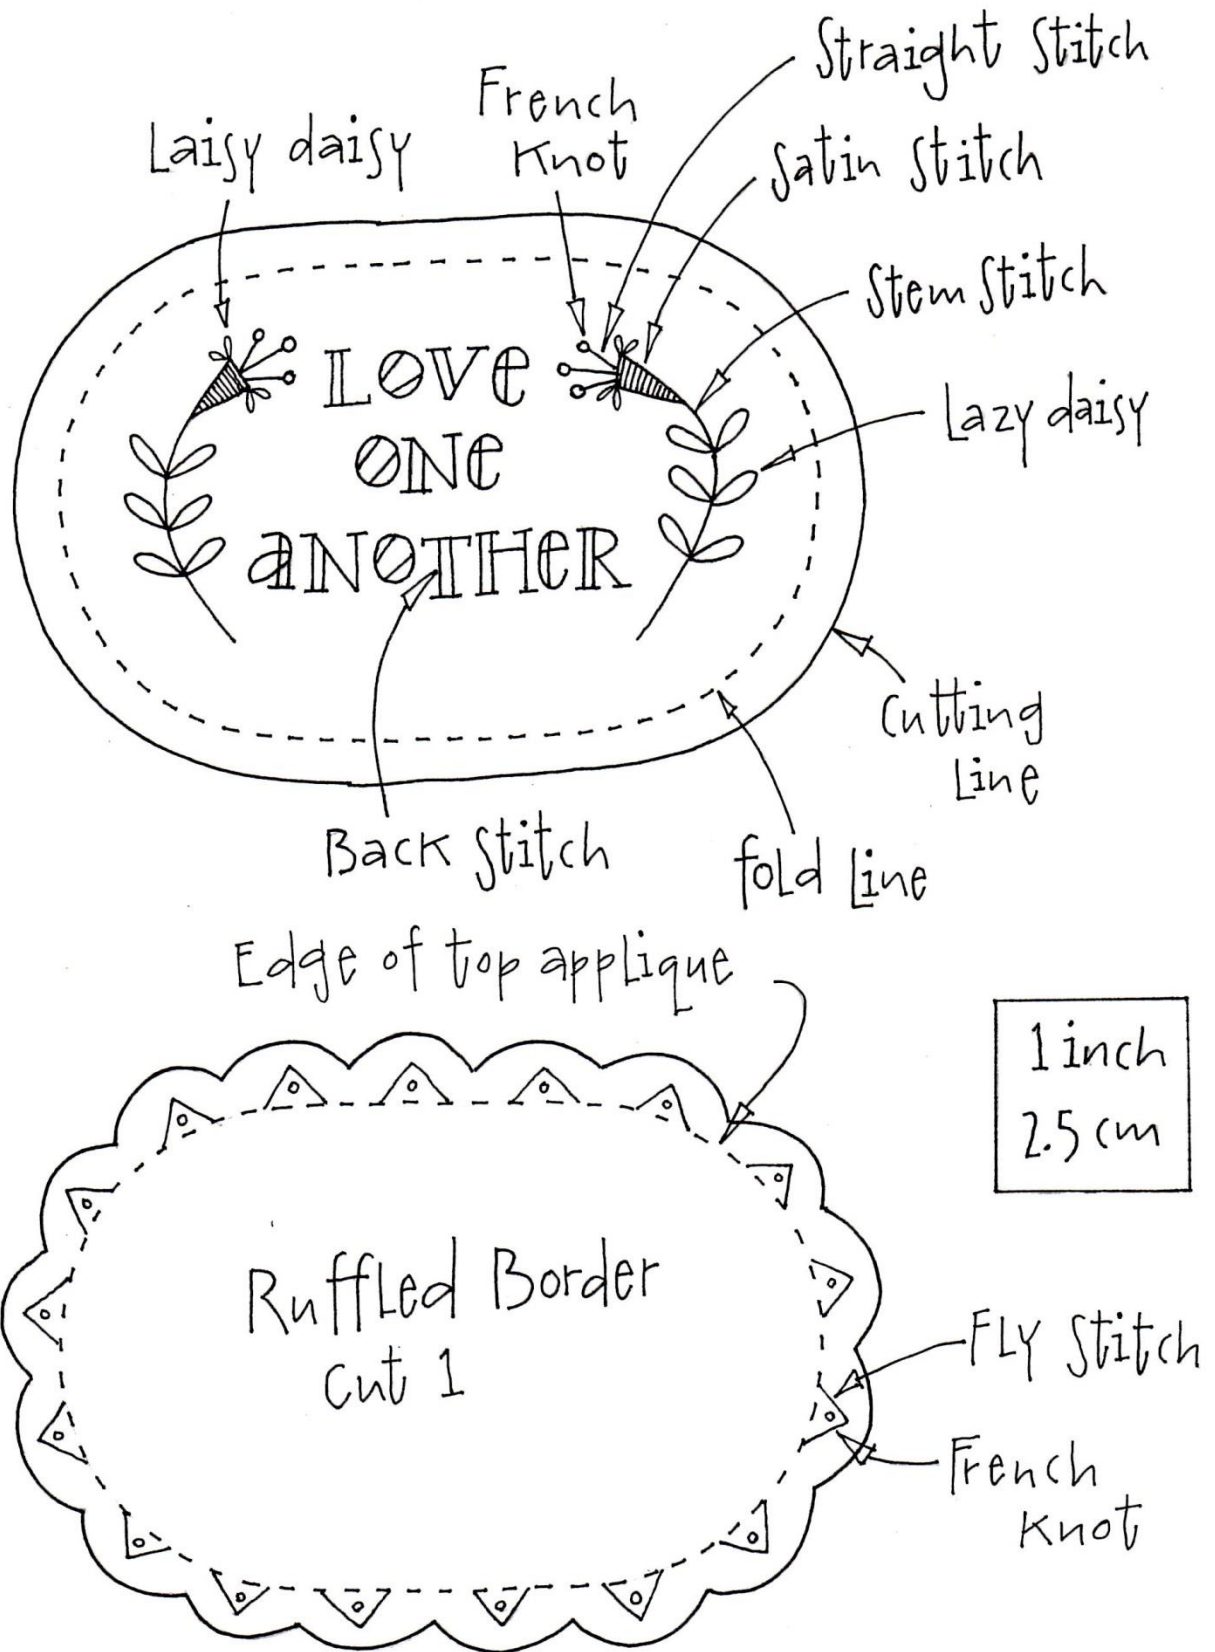 Straight Stitch
French
Knot
Laisy daisy
Satin Stitch
Stem Stitch
Lazy daisy
LOVE
ONE
ANOTHER
Cutting
Line
Back Stitch
fold Line
Edge of top applique
1 inch
2.5 cm
Ruffled Border
Cut 1
FLY Stitch
French
Knot